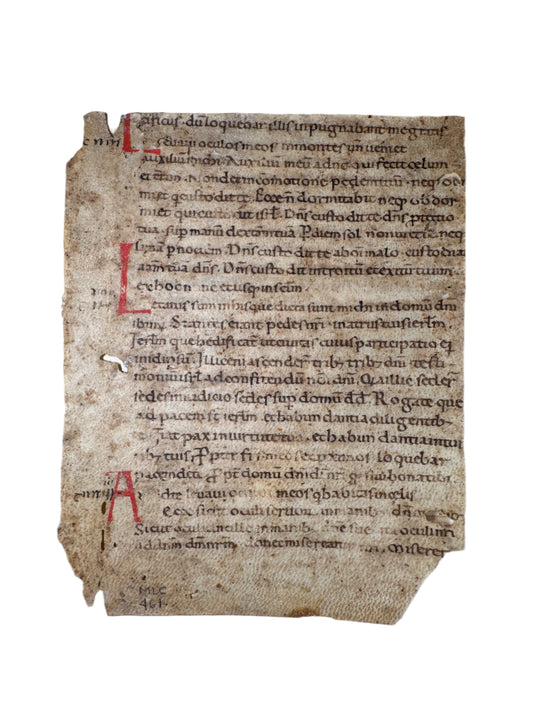 cificus. dū loquebar illis inpugnabant me gratis
Levavi oculos meos in montes un veniet
auxiliū michi. Auxiliū meū a dnō qui fecit celum
et terrā. Non det in comotione pedem tuū neqȝ dor
miet qi custodit te. Ecce nō dormitabit neqȝ obdor
miet qui custodit isrł. Dn̄s custodit te dn̄s ptectio
tua sup manū dexterā tuā. P diem sol non uret te neqȝ
luna p noctem. Dn̄s custodit te ab om̄i malo custodiat
aīam tuā dn̄s. Dn̄s custodit introitū et exitum tuum
ex hoc nc̄ et usqȝ in sc̄lm.
Letatus sum in his que dicta sunt michi in domū dn̄i
ibimȝ. Stantes erant pedes nr̄i in atriis tuis ierłm.
Ierłm que hedificat̄ ut civitas cuius participatio ei
in idipsū. Illuc eni ascender̄ tribȝ tribȝ dn̄i testi
moniū isrł ad confitendū nōi dn̄i. Quia illic seder̄
sedes in iudicio sedes sup domū dd. Rogate que
ad pacem st̄ ierłm et habundantia diligentibȝ
te. Fiat pax in virtute tua et habundantia in turri
ribȝ tuis. Ppt̄ fr̄s meos et pximos loquebar
pacem de te. Ppt̄ domū dn̄i di nr̄i q̄sivi bona tibi.
Ad te levavi oculos meos q̄ habitas in celis.
Ecce sicut oculi servorū in manibȝ dn̄orum
Sicut oculi ancille in manibȝ dn̄e sue ita oculi nr̄i
ad dn̄m dm̄ nr̄m donec misereatur nr̄i. Miserere
MLC
461